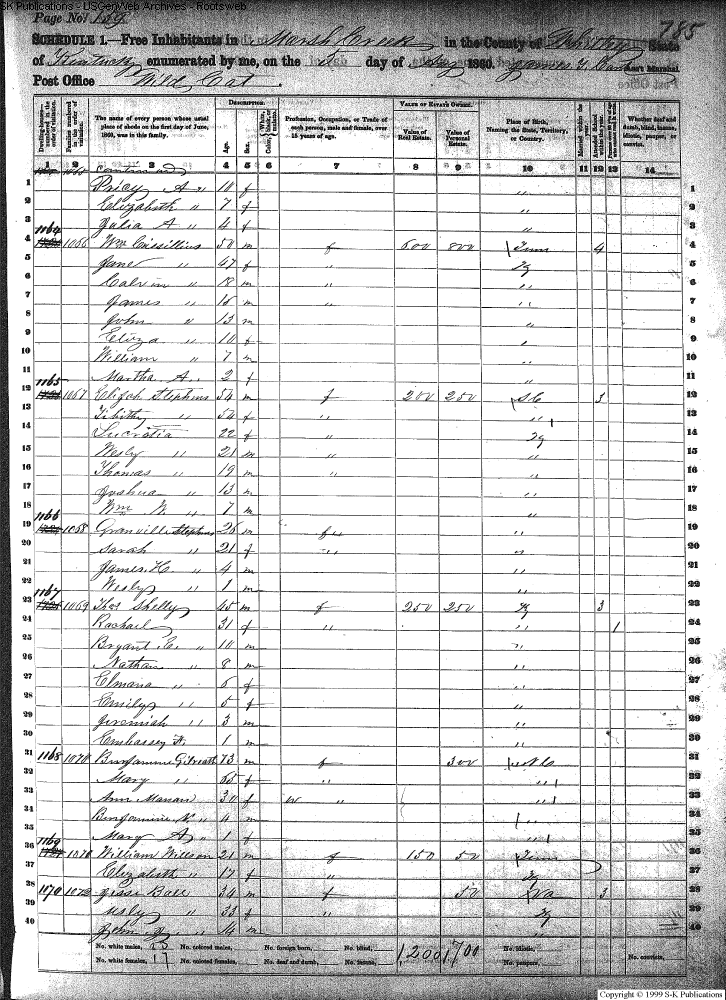 SK Publications - USGenWeb Archives - Rootsweb
Page No. 149
785
SCHEDULE 1.—Free Inhabitants in Marsh Creek in the County of Whitley State
of Kentucky enumerated by me, on the day of 1860. Ass't Marshal
Post Office Wild Cat
DESCRIPTION. VALUE OF ESTATE OWNED.
The name of every person whose usual place of abode on the first day of June, 1860, was in this family.
Age. Sex.
Profession, Occupation, or Trade of each person, male and female, over 15 years of age.
Value of Real Estate. Value of Personal Estate.
Place of Birth, Naming the State, Territory, or Country.
Whether deaf and dumb, blind, insane, idiotic, pauper, or convict.
1 2 3 4 5 6 7 8 9 10 11 12 13 14
continued
1 Pricy A " 10 f " 1
2 Elizabeth " 7 f " 2
3 Julia A " 4 f " 3
4 1164 1066 Wm Crissillius 50 m f 600 800 Tenn 4 4
5 Jane " 47 f " Ky 5
6 Calvin " 18 m " " 6
7 James " 16 m " " 7
8 John " 13 m " 8
9 Eliza " 10 f " 9
10 William " 7 m " 10
11 Martha A " 2 f " 11
12 1165 1067 Elijah Stephens 54 m f 200 250 S C 3 12
13 Tibitha " 54 f " " 1 13
14 Lucratia 22 f " Ky 14
15 Wesly " 21 m " " 15
16 Thomas " 19 m " " 16
17 Joshua " 13 m " 17
18 Wm W. " 7 m " 18
19 1166 1068 Granville Stephens 26 m f " 19
20 Sarah " 21 f " " 20
21 James H. " 4 m " 21
22 Wesly " 1 m " 22
23 1167 1069 Thos Shelly 45 m f 250 250 Ky 3 23
24 Rachael 31 f " " 1 24
25 Bryant C. " 10 m " 25
26 Nathan " 8 m " 26
27 Elmana " 6 f " 27
28 Emily " 5 f " 28
29 Jeremiah " 3 m " 29
30 Embassey A. 1 m " 30
31 1168 1070 Benjamine Gilreath 73 m f 300 N C 31
32 Mary " 65 f " " 1 32
33 Ann Manan 30 f " " 1 33
34 Benjamine N " 4 m " 34
35 Mary A " 1 f " 1 35
36 1169 1071 William Willson 21 m f 150 50 Tenn 36
37 Elizabeth " 17 f " Ky 37
38 1170 1072 Jesse Ball 34 m f 50 Va 3 38
39 " 33 f " Ky 39
40 John " 14 m 40
No. white males, 23 No. colored males, No. foreign born, No. blind, 1,200 1700 No. idiotic, No. convicts,
No. white females, 17 No. colored females, No. deaf and dumb, No. insane, No. paupers,
Copyright © 1999 S-K Publications